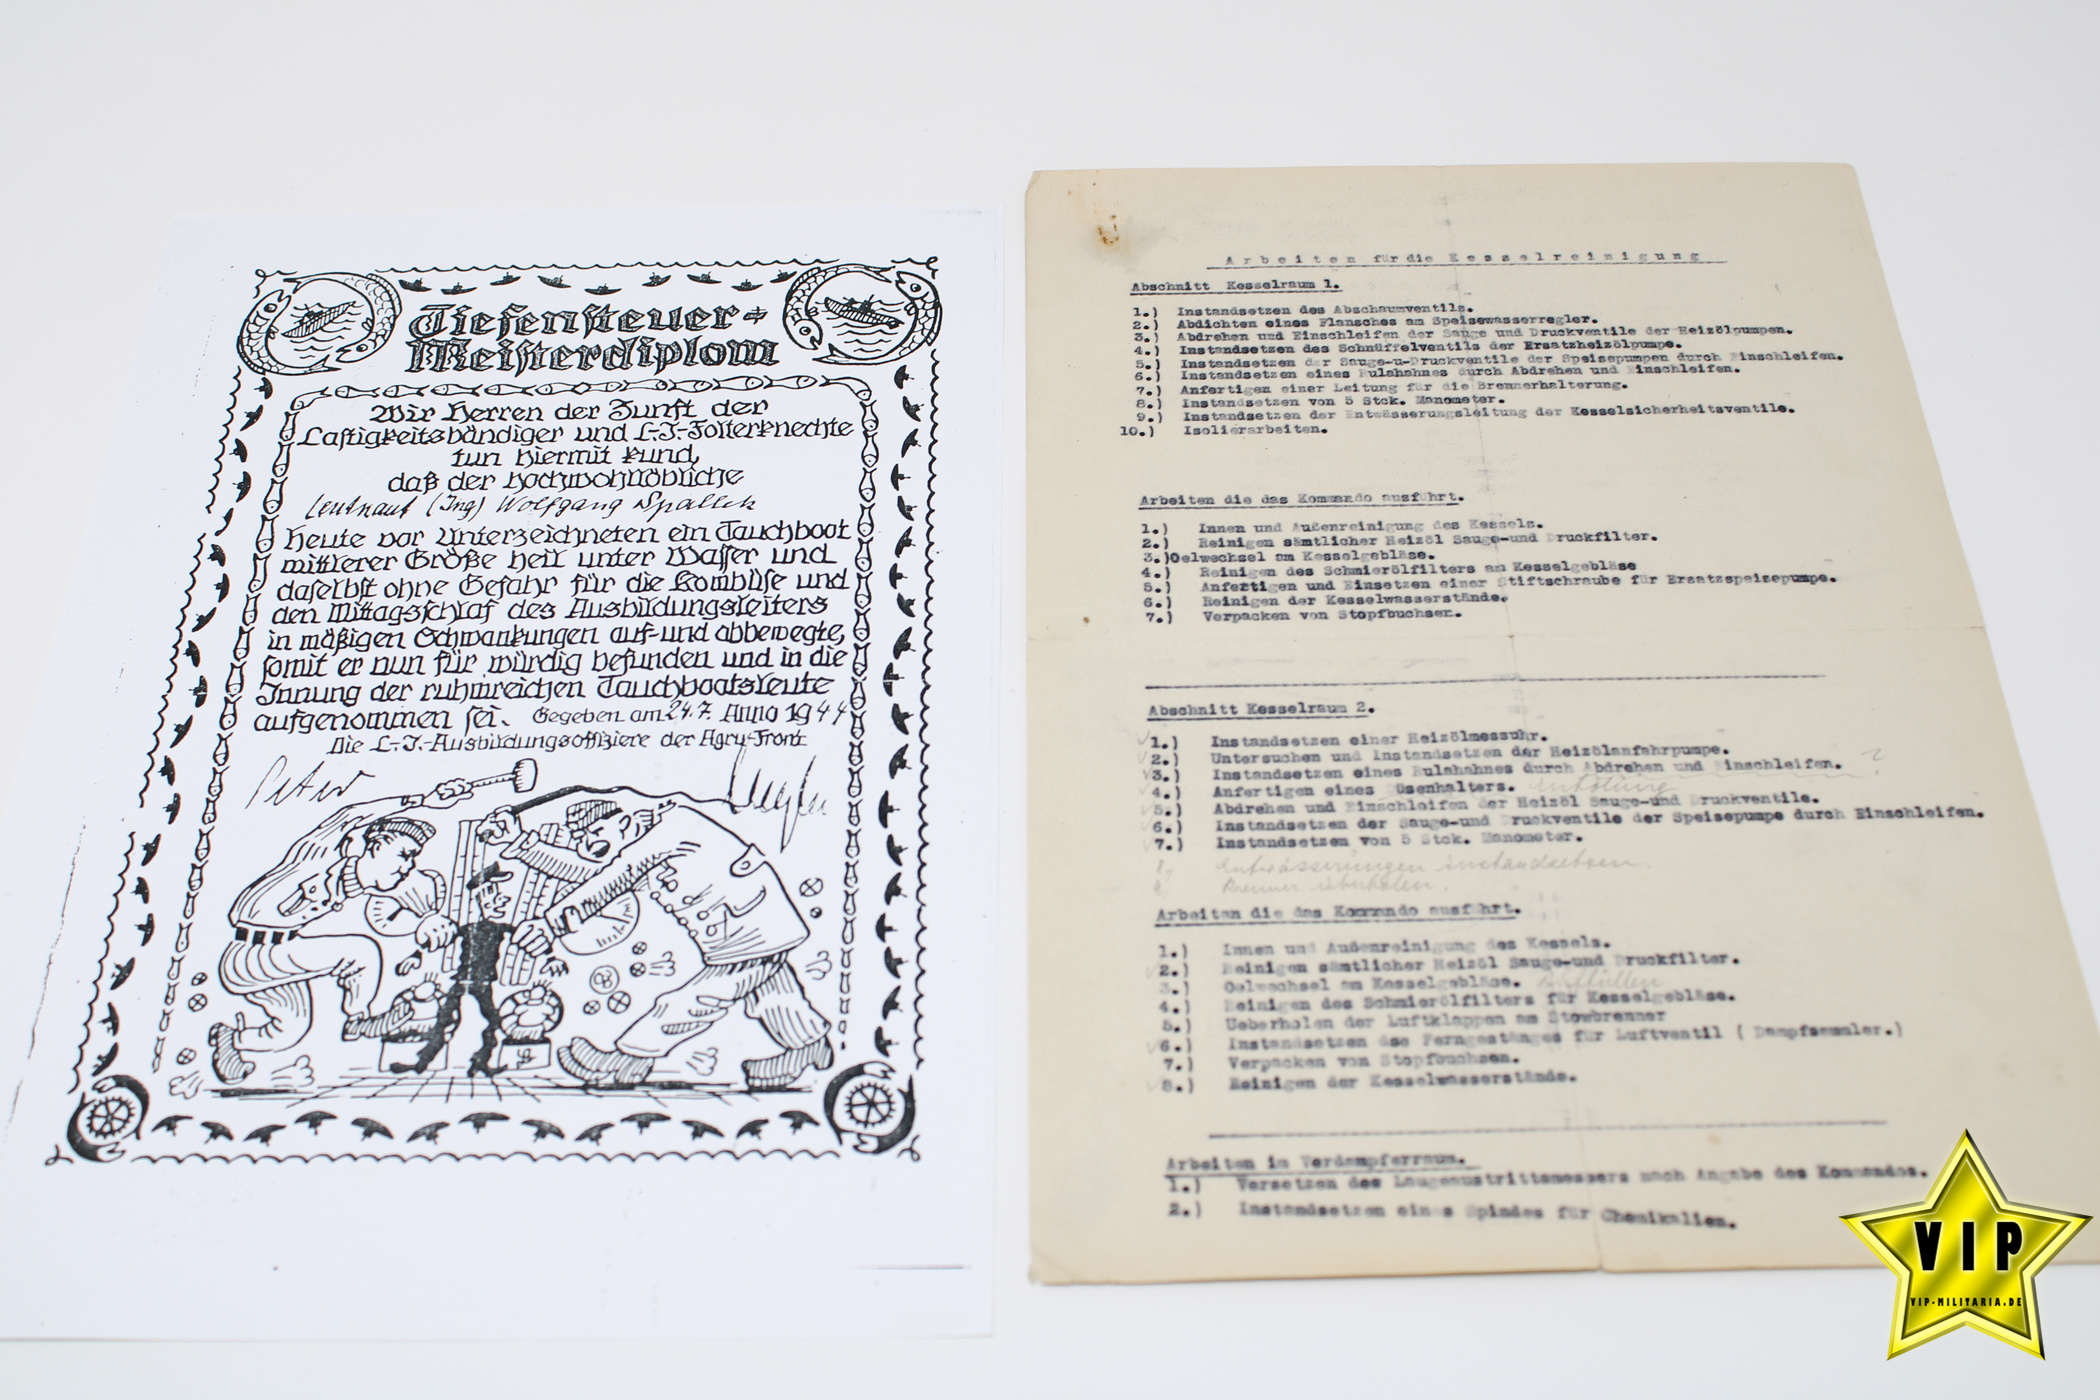 Tiefensteuer-
Meisterdiplom
Wir Herren der Zunft der
Lastigkeitsbändiger und L.-I.-Folterknechte
tun hiermit kund,
daß der hochwohllöbliche
Leutnant (Ing) Wolfgang Spalleck
heute vor Unterzeichneten ein Tauchboot
mittlerer Größe heil unter Wasser und
daselbst ohne Gefahr für die Kombüse und
den Mittagsschlaf des Ausbildungsleiters
in mäßigen Schwankungen auf- und abbewegte,
somit er nun für würdig befunden und in die
Innung der ruhmreichen Tauchbootsleute
aufgenommen sei. Gegeben am 24.7. Anno 1944
Die L.-I.-Ausbildungsoffiziere der Agru-Front
Peter
Arbeiten für die Kesselreinigung
Abschnitt Kesselraum 1.
1.) Instandsetzen des Abschaumventils.
2.) Abdichten eines Flansches am Speisewasserregler.
3.) Abdrehen und Einschleifen der Sauge und Druckventile der Heizölpumpen.
4.) Instandsetzen des Schnüffelventils der Ersatzheizölpumpe.
5.) Instandsetzen der Sauge-u-Druckventile der Speisepumpen durch Einschleifen.
6.) Instandsetzen eines Rulahahnes durch Abdrehen und Einschleifen.
7.) Anfertigen einer Leitung für die Brennerhalterung.
8.) Instandsetzen von 5 Stck. Manometer.
9.) Instandsetzen der Entwässerungsleitung der Kesselsicherheitsventile.
10.) Isolierarbeiten.
Arbeiten die das Kommando ausführt.
1.) Innen und Außenreinigung des Kessels.
2.) Reinigen sämtlicher Heizöl Sauge-und Druckfilter.
3.)Oelwechsel am Kesselgebläse.
4.) Reinigen des Schmierölfilters am Kesselgebläse
5.) Anfertigen und Einsetzen einer Stiftschraube für Ersatzspeisepumpe.
6.) Reinigen der Kesselwasserstände.
7.) Verpacken von Stopfbuchsen.
Abschnitt Kesselraum 2.
1.) Instandsetzen einer Heizölmessuhr.
2.) Untersuchen und Instandsetzen der Heizölanfahrpumpe.
3.) Instandsetzen eines Rulahahnes durch Abdrehen und Einschleifen. ?
4.) Anfertigen eines Düsenhalters.
5.) Abdrehen und Einschleifen der Heizöl Sauge-und Druckventile.
6.) Instandsetzen der Sauge-und Druckventile der Speisepumpe durch Einschleifen.
7.) Instandsetzen von 5 Stck. Manometer.
8) Entwässerungen instandsetzen.
9) Brenner überholen.
Arbeiten die das Kommando ausführt.
1.) Innen und Außenreinigung des Kessels.
2.) Reinigen sämtlicher Heizöl Sauge-und Druckfilter.
3.) Oelwechsel am Kesselgebläse. Auffüllen
4.) Reinigen des Schmierölfilters für Kesselgebläse.
5.) Ueberholen der Luftklappen am Stowbrenner
6.) Instandsetzen dse Ferngestänges für Luftventil ( Dampfsammler.)
7.) Verpacken von Stopfbuchsen.
8.) Reinigen der Kesselwasserstände.
Arbeiten im Verdampferraum.
1.) Versetzen des Laugeaustrittsmessers nach Angabe des Kommandos.
2.) Instandsetzen eines Spindes für Chemikalien.
VIP
VIP-MILITARIA.DE